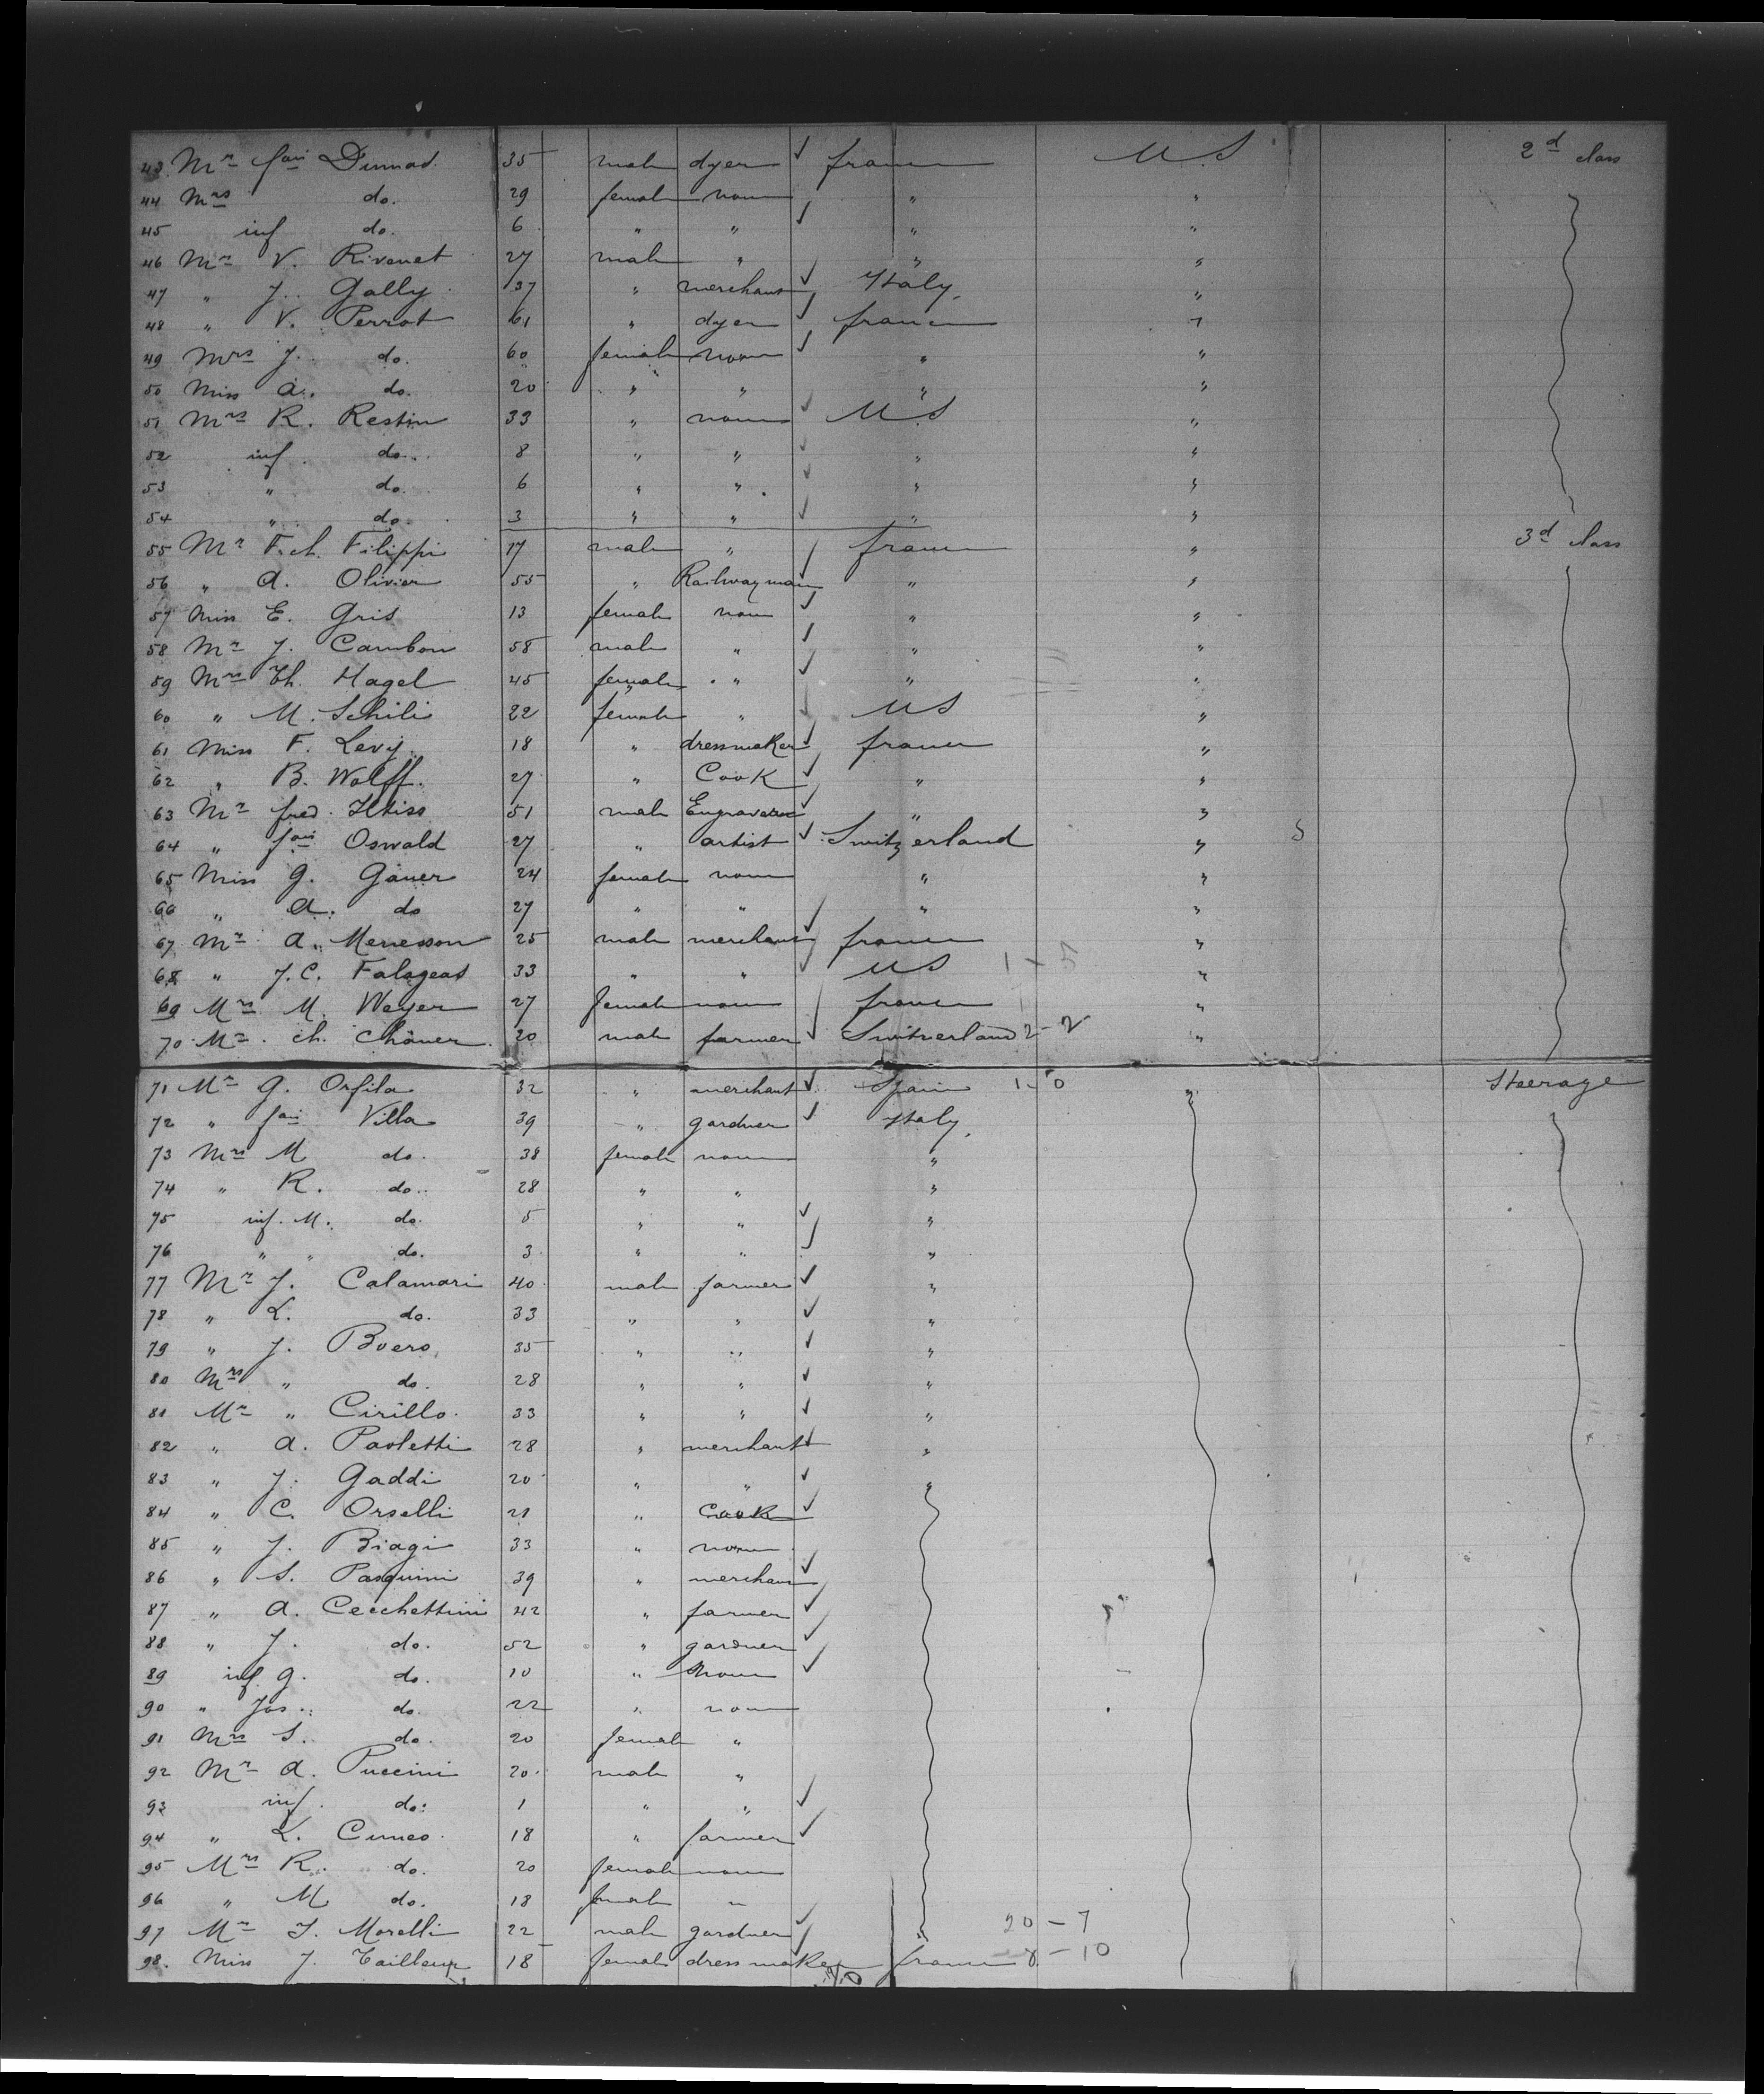 43 Mr fois Dumad. 35 male dyer ✓ france U.S 2d class
44 Mrs do. 29 female none " "
45 inf do. 6 " " ✓ " "
46 Mr V. Rivenet 27 male " " "
47 " J. Gally 37 " merchant ✓ Italy. "
48 " V. Perrot 61 " dyer ✓ france "
49 Mrs J. do. 60 female none ✓ " "
50 Miss A. do. 20 " " " "
51 Mrs R. Restin 33 " none ✓ U.S "
52 inf. do. 8 " " ✓ " "
53 " do. 6 " " ✓ " "
54 " do. 3 " " ✓ " "
55 Mr F.ch. Filippi 17 male " ✓ france " 3d class
56 " A. Olivier 55 " Railwayman ✓ " "
57 Miss E. Gris 13 female none ✓ " "
58 Mr J. Cambon 58 male " ✓ " "
59 Mrs Th. Hagel 45 female " ✓ " "
60 " M. Schili 22 female " ✓ US "
61 Miss F. Levy. 18 " dressmaker ✓ france "
62 " B. Wolff. 27 " Cook ✓ " "
63 Mr fred. 51 male ✓ " "
64 " fois Oswald 27 " artist ✓ Switzerland " 5
65 Miss G. Gäuer 24 female none " "
66 " A. do 27 " " ✓ " "
67 Mr A. Menesson 25 male merchant ✓ france "
68 " J.C. Falageas 33 " " ✓ US "
69 Mrs M. Weyer 27 female none ✓ france "
70 Mr ch. Chäuer. 20 male farmer ✓ Switzerland 2-2 "
71 Mr G. Orfila 32 " merchant ✓ Spain 1-0 " Steerage
72 " fois Villa 39 " gardner ✓ Italy.
73 Mrs M do. 38 female none "
74 " R. do.. 28 " " "
75 inf. M. do. 5 " " ✓ "
76 " " do. 3 " " ✓ "
77 Mr J. Calamari 40 male farmer ✓ "
78 " L. do. 33 " " ✓ "
79 " J. Boero 35 " " ✓ "
80 Mrs " do. 28 " " ✓ "
81 Mr " Cirillo. 33 " " ✓ "
82 " A. Paoletti 28 " merchant ✓ "
83 " J. Gaddi 20 " " ✓ "
84 " C. Orselli 21 " Cook ✓
85 " J. Biagi 33 " none
86 " S. Pasquini 39 " merchant ✓
87 " A. Cecchettini 42 " farmer ✓
88 " J. do. 52 " gardner ✓
89 inf. G. do. 10 " none ✓
90 " Jos. do. 22 " none
91 Mrs S. do. 20 female "
92 Mr A. Puccini 20. male "
93 inf. do. 1 " " ✓
94 " L. Cuneo. 18 " farmer ✓
95 Mrs R. do. 20 female none
96 " M do. 18 female "
97 Mr J. Morelli 22 male gardner ✓ " 20-7
98. Miss J. Tailleur 18 female dressmaker france 8-10